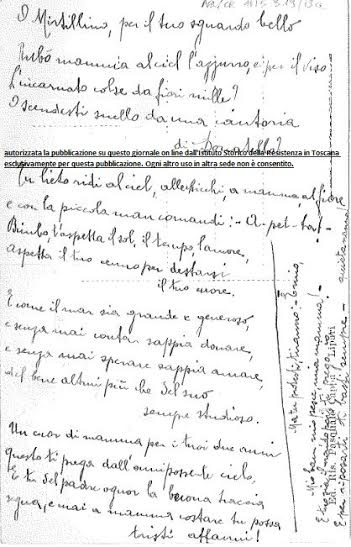 O Mirtillino, per il tuo sguardo bello
Rubò mamma al ciel l'azzurro, e per il viso
L'incarnato colse da fiori mille?
O scendesti snello da una cantoria
di Donatello?
autorizzata la pubblicazione su questo giornale on line dall'Istituto Storico della Resistenza in Toscana
esclusivamente per questa pubblicazione. Ogni altro uso in altra sede non è consentito.
Tu lieto ridi al ciel, alle
a mamma al fiore
e con la piccola man comandi:
Bimbo, t'aspetta il sol, il tempo, l'amore,
aspetta il tuo cenno per destarsi
il tuo cuore.
E come il mar sia grande e generoso,
e senza mai contar sappia donare,
e senza mai sperare sappia amare,
del bene altrui più che del suo
sempre studioso.
Un cuor di mamma per i tuoi due anni
questo ti prega dall'onnipossente cielo,
E tu del padre ognor la buona traccia
segua, e mai a mamma costare tu possa
tristi affanni!